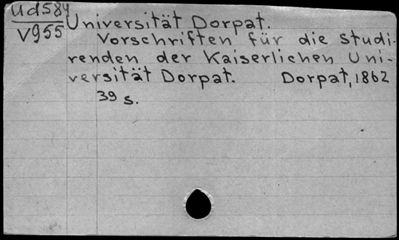 Ud584
V955
Universität Dorpat.
Vorschriften für die Studi-
renden der Kaiserlichen Uni-
versität Dorpat. Dorpat, 1862
39 s.